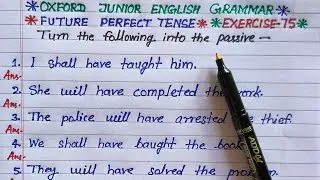 *OXFORD JUNIOR ENGLISH GRAMMAR*
*FUTURE PERFECT TENSE* *EXERCISE-75*
Turn the following into the passive —
1. I shall have taught him.
Ans-
2. She will have completed the work.
Ans-
3. The police will have arrested the thief.
Ans-
4. We shall have baught the book
Ans-
5. They will have solved the problem.